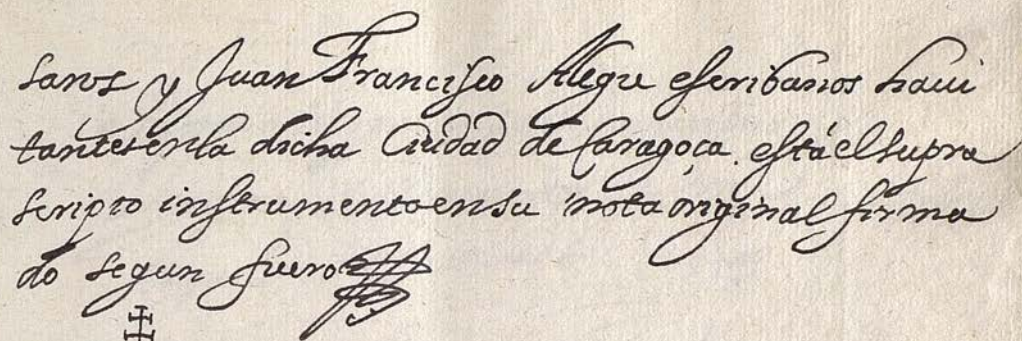 sanos y Juan Francisco Alegre escribanos haui
tantes en la dicha Ciudad de Caragoça. está el supra
scripto instrumento en su nota original firma
do segun fuero